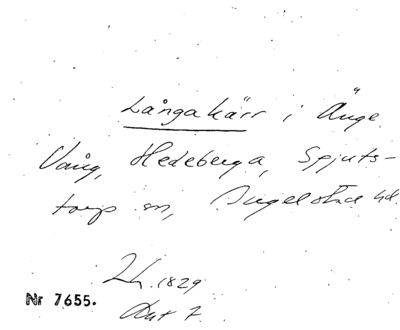 Långakärr i Änge
Vång, Hedeberga, Spjuts-
torp sn, Ingelstad hd.
Lh. 1829
Nr 7655.
Akt 7